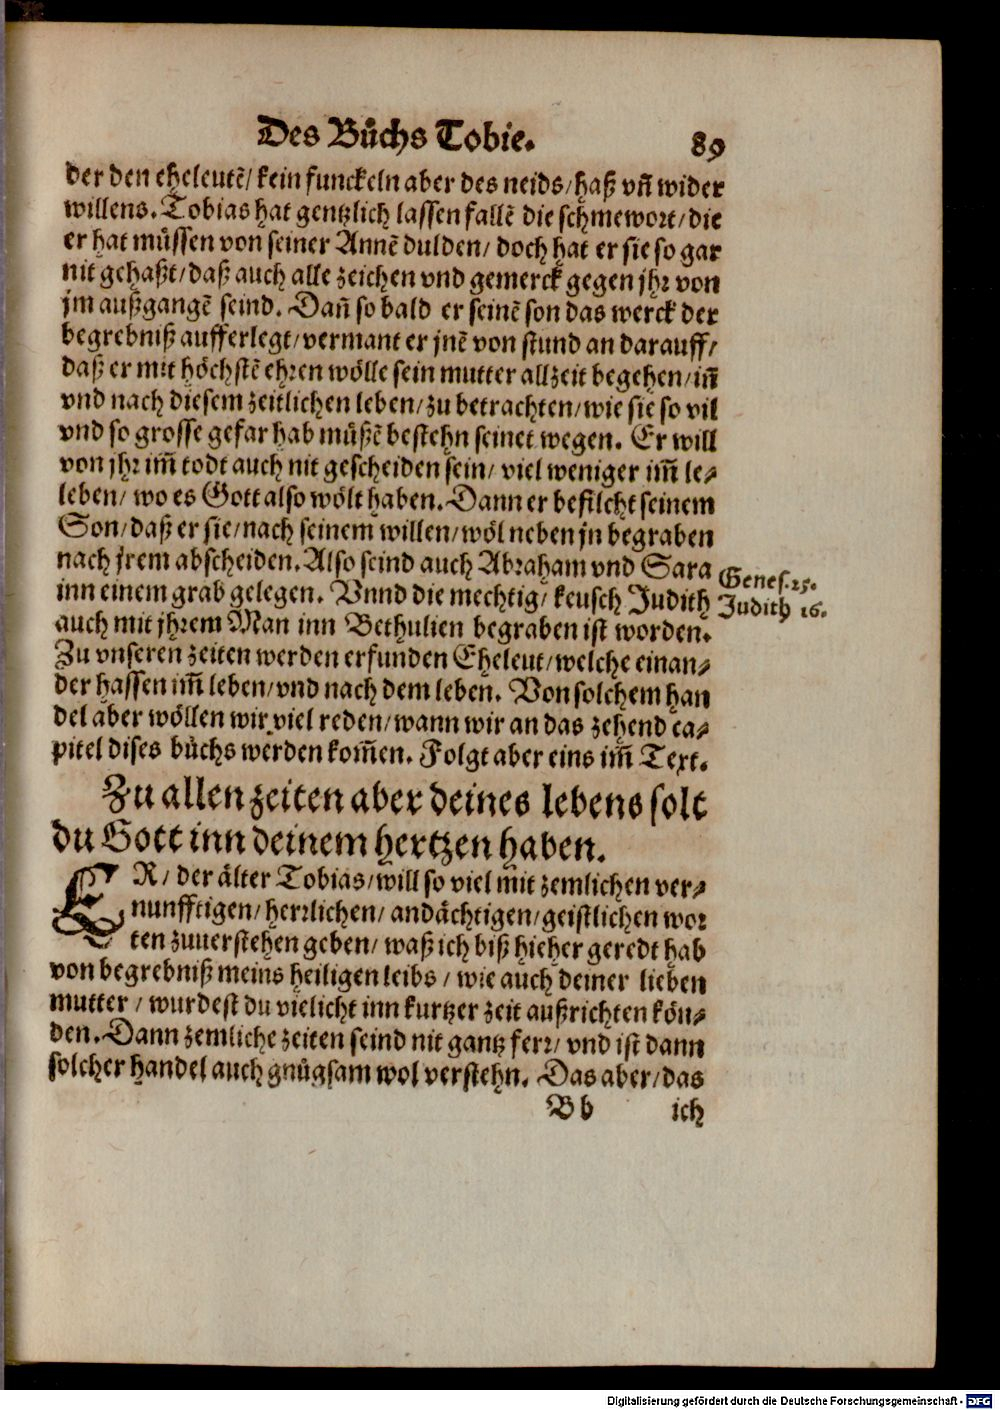 Des Bůchs Tobie. 89
der den eheleutē/ kein funckeln aber des neids/ haß vñ wider
willens. Tobias hat gentzlich lassen fallē die schmewort/ die
er hat můssen von seiner Annē dulden/ doch hat er sie so gar
nit gehaßt/ daß auch alle zeichen vnd gemerck gegen jhr von
jm außgangē seind. Dañ so bald er seinē son das werck der
begrebniß aufferlegt/ vermant er jnē von stund an darauff/
daß er mit höchstē ehren wölle sein mutter allzeit begehen/ iñ
vnd nach diesem zeitlichen leben/ zu betrachten/ wie sie so vil
vnd so grosse gefar hab můßē bestehn seinet wegen. Er will
von jhr im̃ todt auch nit gescheiden sein/ viel weniger im̃ le-
leben/ wo es Gott also wölt haben. Dann er befilcht seinem
Son/ daß er sie/ nach seinem willen/ wöl neben jn begraben
nach jrem abscheiden. Also seind auch Abraham vnd Sara
Genes. 25.
inn einem grab gelegen. Vnnd die mechtig/ keusch Judith
Judith 16.
auch mit jhrem Man inn Bethulien begraben ist worden.
Zu vnseren zeiten werden erfunden Eheleut/ welche einan-
der hassen im̃ leben/ vnd nach dem leben. Von solchem han
del aber wöllen wir viel reden/ wann wir an das zehend ca-
pitel dises bůchs werden kom̃en. Folgt aber eins im̃ Text.
Zu allen zeiten aber deines lebens solt
du Gott inn deinem hertzen haben.
ER/ der älter Tobias/ will so viel mit zemlichen ver-
nunfftigen/ herrlichen/ andächtigen/ geistlichen wor
ten zuuerstehen geben/ waß ich biß hieher geredt hab
von begrebniß meins heiligen leibs/ wie auch deiner lieben
mutter/ wurdest du vielicht inn kurtzer zeit außrichten kön-
den. Dann zemliche zeiten seind nit gantz ferr/ vnd ist dann
solcher handel auch gnůgsam wol verstehn. Das aber/ das
Bb ich
Digitalisierung gefördert durch die Deutsche Forschungsgemeinschaft - DFG